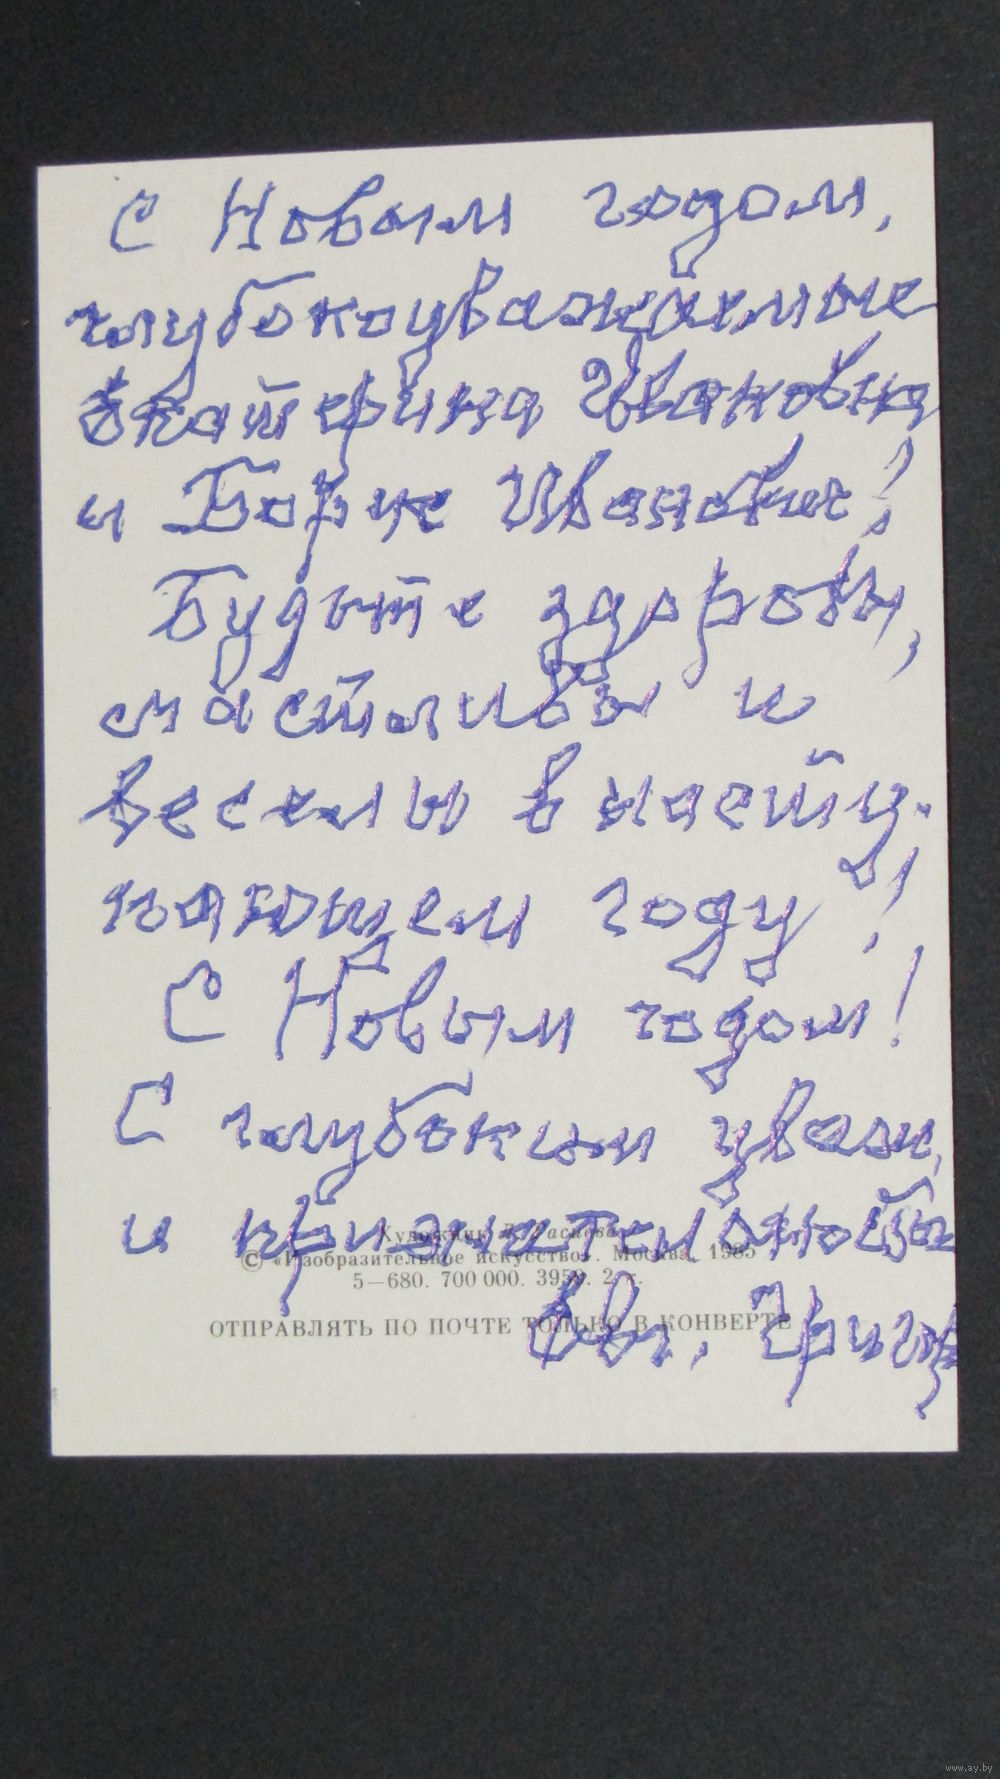 С Новым годом,
глубокоуважаемые
Екатерина Ивановна
и Борис Иванович!
Будьте здоровы,
счастливы и
веселы в насту-
пающем году!
С Новым годом!
С глубоким уваж.
и признательностью
Художник Л.
© «Изобразительное искусство». Москва. 1985
5—680. 700 000. 2 к.
ОТПРАВЛЯТЬ ПО ПОЧТЕ ТОЛЬКО В КОНВЕРТЕ
Евг.
www.ay.by